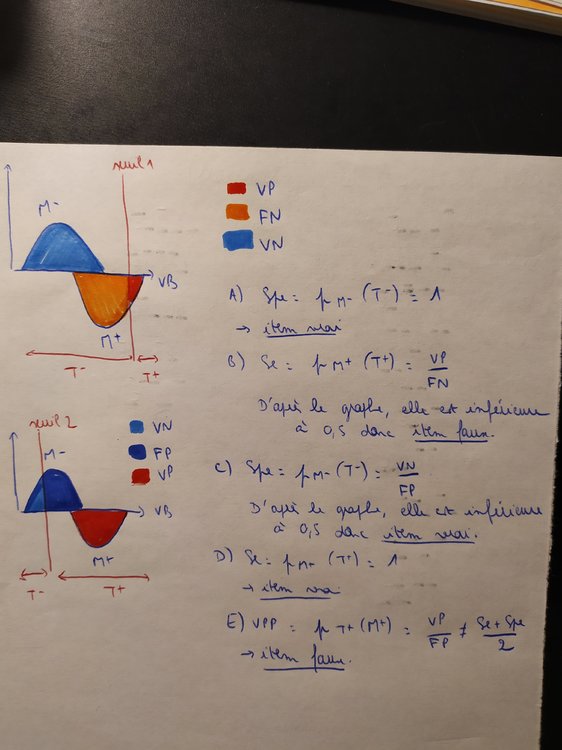 seuil 1
M-
VB
M+
T-
T+
VP
FN
VN
A) Spe = p M- (T-) = 1
→ item vrai
B) Se = p M+ (T+) = VP
FN
D'après le graphe, elle est inférieure
à 0,5 donc item faux.
seuil 2
M-
VB
M+
T-
T+
VN
FP
VP
C) Spe = p M- (T-) = VN
FP
D'après le graphe, elle est inférieure
à 0,5 donc item vrai.
D) Se = p M+ (T+) = 1
→ item vrai
E) VPP = p T+ (M+) = VP ≠ Se + Spe
FP 2
→ item faux.